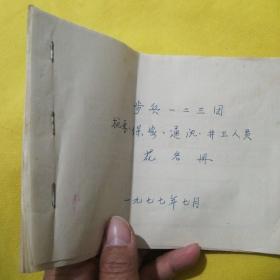 步兵一二三团
机要·保密·通讯·书工人员
花名册
一九七七年七月